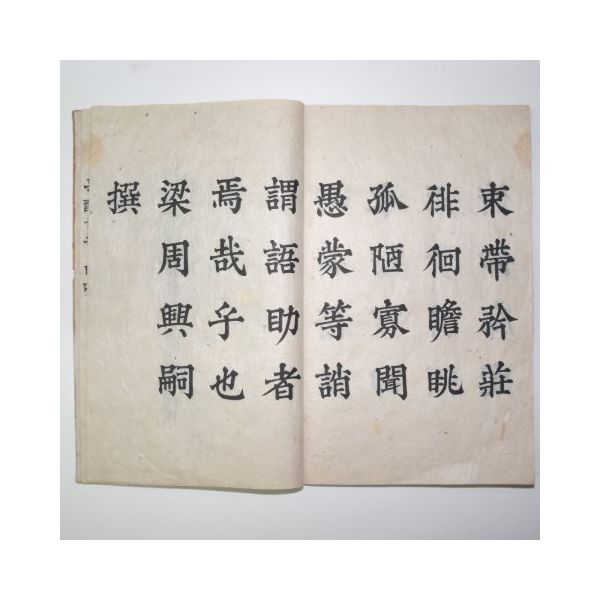 束帶矜莊
徘徊瞻眺
孤陋寡聞
愚蒙等誚
謂語助者
焉哉乎也
梁周興嗣
撰